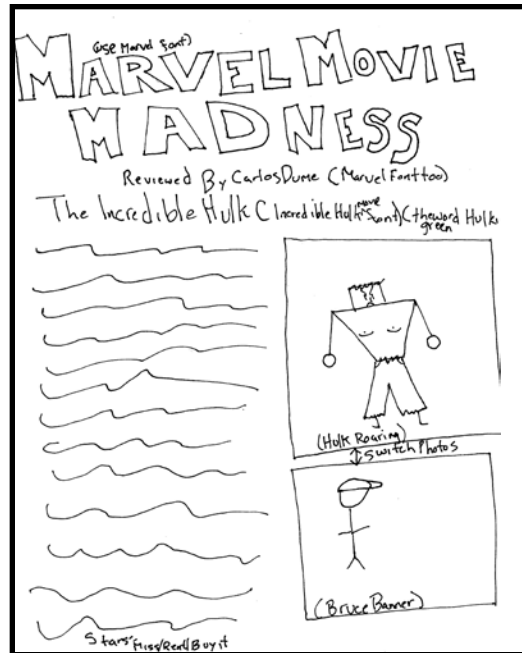 (use Marvel font)
MARVEL MOVIE
MADNESS
Reviewed By Carlos Dume (Marvel Font too)
The Incredible Hulk (Incredible Hulk movie font) (the word Hulk
green
(Hulk Roaring)
Switch Photos
(Bruce Banner)
Stars Miss/Rent/Buy it